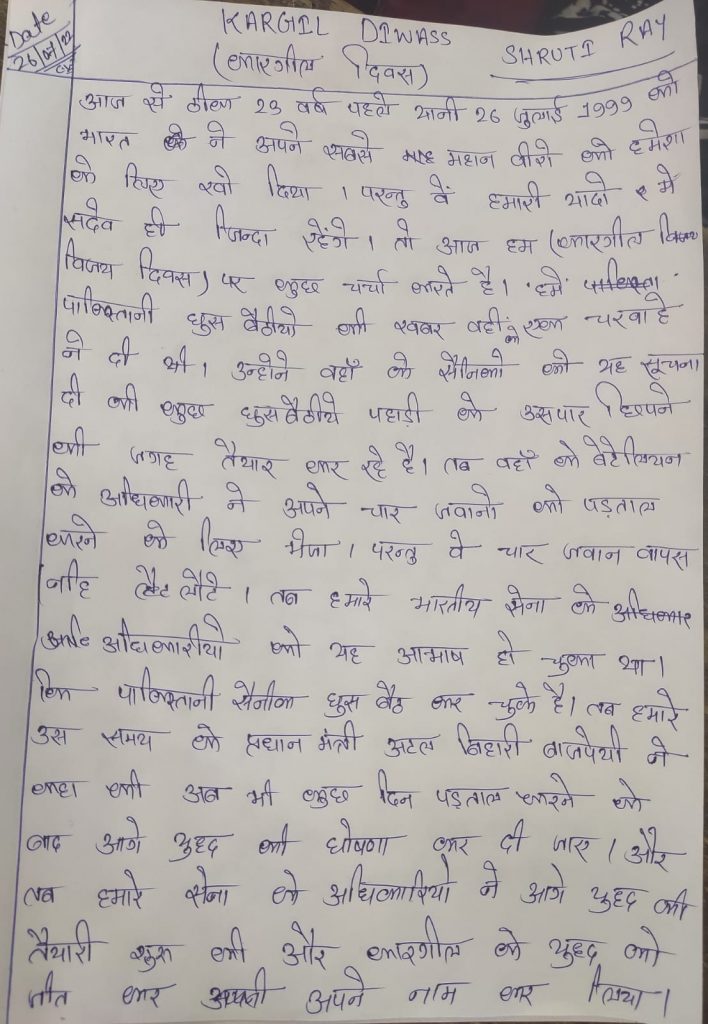 Date
26/07/22
KARGIL DIWASS
SHRUTI RAY
(कारगील दिवस)
आज से ठीक 23 वर्ष पहले यानी 26 जुलाई 1999 को
भारत ने अपने सबसे महान वीरो को हमेशा
के लिए खो दिया । परन्तु वें हमारी यादो में
सदेव ही जिन्दा रहेंगे । तो आज हम (कारगील विजय
विजय दिवस) पर कुछ चर्चा करते है। हमें
पाकिस्तानी घुस बैठीयो की खबर वहीं के एक चरवाहे
ने दी थी । उन्होने वहाँ के सैनिको को यह सूचना
दी की कुछ घुसबैठीये पहाडी के उसपार छिपने
की जगह तैयार कर रहे है। तब वहाँ के बेटेलियन
के अधिकारी ने अपने चार जवानो को पड़ताल
करने के लिए भेजा । परन्तु वे चार जवान वापस
नहि लौटे । तब हमारे भारतीय सेना के अधिकार
अधिकारीयो को यह आभाष हो चुका था।
कि पाकिस्तानी सैनीक घुस बैठ कर चुके है। तब हमारे
उस समय के प्रधान मंत्री अटल बिहारी बाजपेयी ने
कहा की अब भी कुछ दिन पड़ताल करने के
बाद आगे युद्द की घोषणा कर दी जाए । और
तब हमारे सेना के अधिकारियो ने आगे युद्द की
तैयारी शुरू की और कारगील के युद्द को
जीत कर अपने नाम कर लिया ।